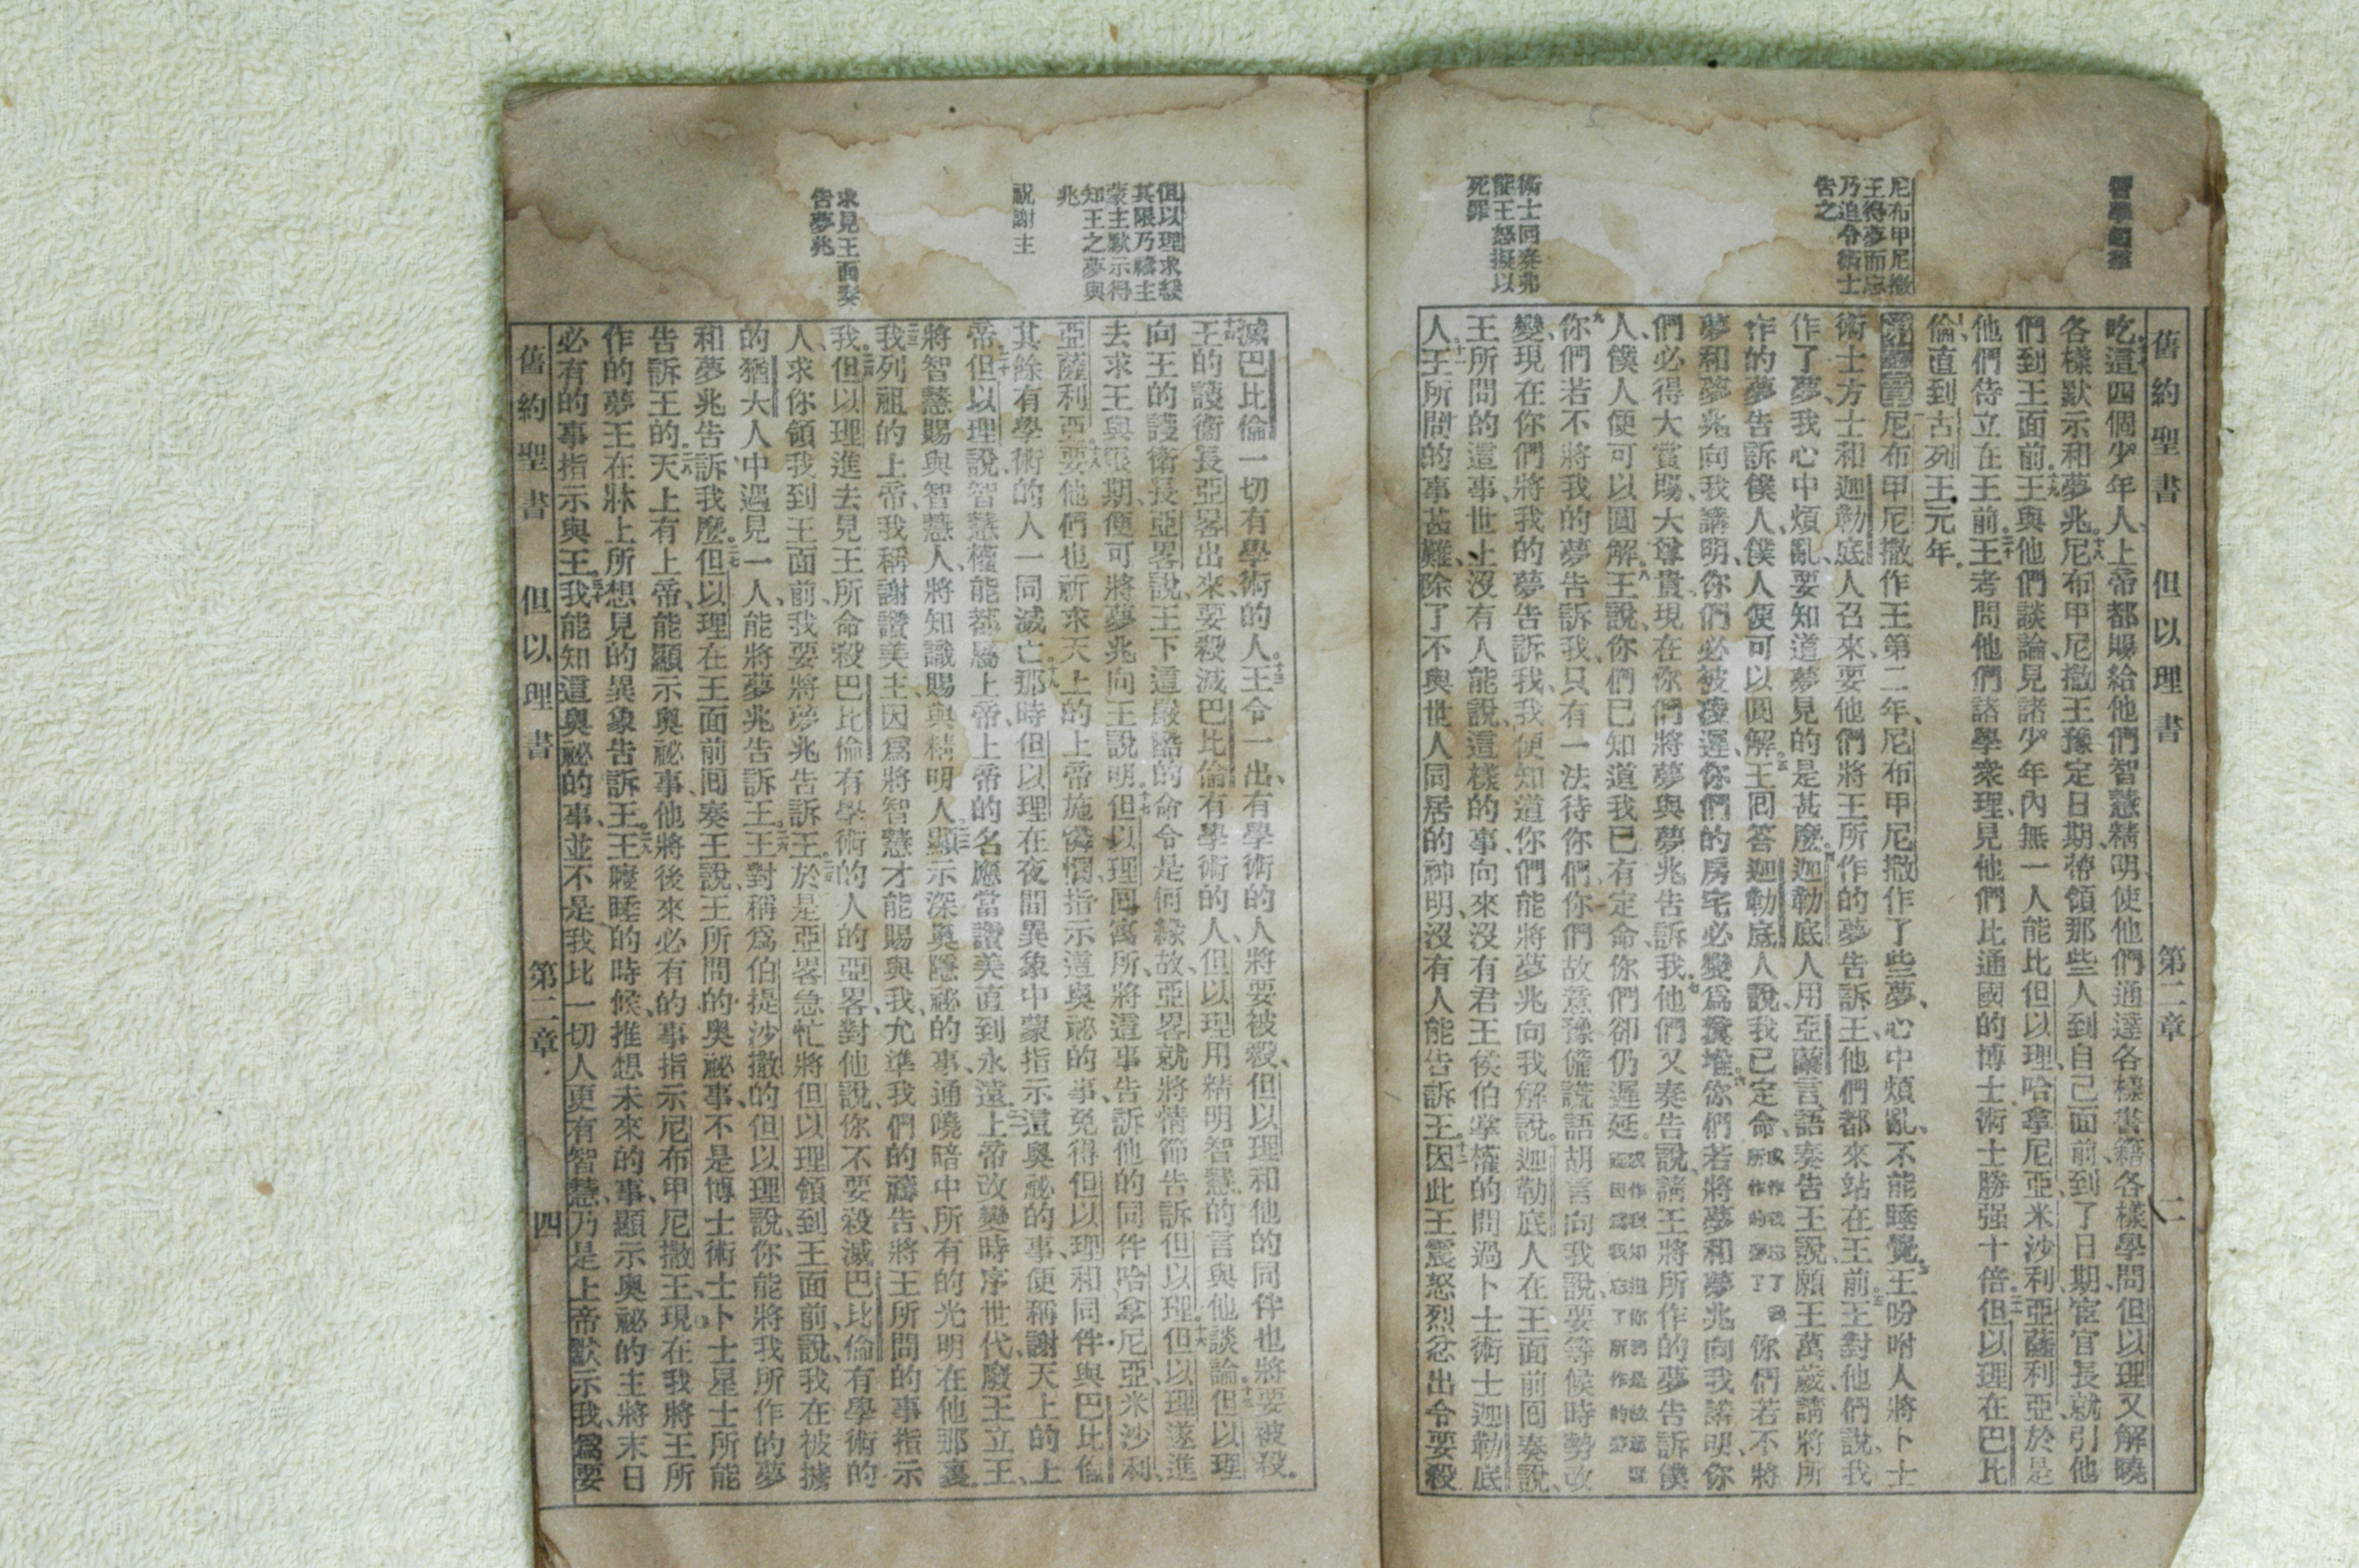 舊約聖書 但以理書 第二章
吃這四個少年人、上帝都賜給他們智慧精明、使他們通達各樣書籍、各樣學問、但以理又解曉
各樣默示和夢兆。十八尼布甲尼撒王豫定日期、帶領那些人到自己面前、到了日期、宦官長就引他
們到王面前。十九王與他們談論、見諸少年內無一人能比但以理、哈拿尼亞、米沙利、亞薩利亞、於是
他們侍立在王前。二十王考問他們諸學衆理、見他們比通國的博士術士勝强十倍。但以理在巴比
倫、直到古列王元年。
尼布甲尼撒作王第二年、尼布甲尼撒作了些夢、心中煩亂、不能睡覺。王吩咐人將卜士
術士方士和迦勒底人召來、要他們將王所作的夢告訴王、他們都來站在王前。三王對他們說、我
作了夢、我心中煩亂、要知道夢見的是甚麼。四迦勒底人用亞蘭言語奏告王說、願王萬歲、請將所
作的夢告訴僕人、僕人便可以圓解。五王回答迦勒底人說、我已定命、你們若不將
夢和夢兆向我講明、你們必被凌遲、你們的房宅必變爲糞堆。六你們若將夢和夢兆向我講明、你
們必得大賞賜、大尊貴、現在你們將夢與夢兆告訴我。七他們又奏告說、請王將所作的夢告訴僕
人、僕人便可以圓解。八王說、你們已知道我已有定命、你們卻仍遲延。
九你們若不將我的夢告訴我、只有一法待你們、你們故意豫備謊語胡言向我說、要等候時勢改
變、現在你們將我的夢告訴我、我便知道你們能將夢兆向我解說。十迦勒底人在王面前回奏說、
王所問的這事、世上沒有人能說、這樣的事、向來沒有君王侯伯掌權的問過卜士術士迦勒底
人、十一王所問的事甚難、除了不與世人同居的神明、沒有人能告訴王。十二因此王震怒烈忿、出令要殺
尼布甲尼撒
王得夢而忘
乃追令術士
告之
術士回奏弗
能王怒擬以
死罪
滅巴比倫一切有學術的人。十三王令一出、有學術的人將要被殺、但以理和他的同伴也將要被殺。
十四王的護衞長亞畧出來、要殺滅巴比倫有學術的人、但以理用精明智慧的言與他談論。十五但以理
向王的護衞長亞畧說、王下這嚴酷的命令是何緣故、亞畧就將情節告訴但以理。十六但以理遂進
去求王與限期、便可將夢兆向王說明。十七但以理回寓所、將這事告訴他的同伴哈拿尼亞、米沙利、
亞薩利亞。十八要他們也祈求天上的上帝施憐憫、指示這奧祕的事、免得但以理和同伴、與巴比倫
其餘有學術的人一同滅亡。十九那時但以理在夜間異象中蒙指示這奧祕的事、便稱謝天上的上
帝。二十但以理說、智慧權能都屬上帝、上帝的名應當讚美直到永遠。二一上帝改變時序世代、廢王立王、
將智慧賜與智慧人、將知識賜與精明人。二二顯示深奧隱祕的事、通曉暗中所有的、光明在他那裏。
二三我列祖的上帝、我稱謝讚美主、因爲將智慧才能賜與我、允準我們的禱告、將王所問的事指示
我。二四但以理進去見王所命殺巴比倫有學術的人的亞畧、對他說、你不要殺滅巴比倫有學術的
人、求你領我到王面前、我要將夢兆告訴王。二五於是亞畧急忙將但以理領到王面前、說、我在被擄
的猶大人中遇見一人、能將夢兆告訴王。二六王對稱爲伯提沙撒的但以理說、你能將我所作的夢
和夢兆告訴我麼。二七但以理在王面前回奏王說、王所問的奧祕事、不是博士術士卜士星士所能
告訴王的。二八天上有上帝、能顯示奧祕事、他將後來必有的事指示尼布甲尼撒王、現在我將王所
作的夢、王在牀上所想見的異象告訴王。二九王寢睡的時候、推想未來的事、顯示奧祕的主將末日
必有的事指示與王。三十我能知這奧祕的事、並不是我比一切人更有智慧、乃是上帝默示我、爲要
舊約聖書 但以理書 第二章 四
但以理求緩
其限乃禱主
蒙主默示得
知王之夢與
兆
祝謝主
求見王面奏
告夢兆